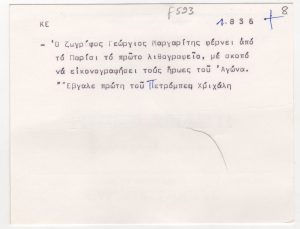 F593
ΚΕ 1.836 + 8
- Ὁ ζωγρᾶφος Γεώργιος Μαργαρίτης φέρνει ἀπό
τό Παρίσι τό πρῶτο λιθογραφεῖο, μέ σκοπό
νά εἰκονογραφήσει τούς ἥρωες τοῦ Ἀγώνα.
Ἔβγαλε πρώτη τοῦ Πετρόμπεη